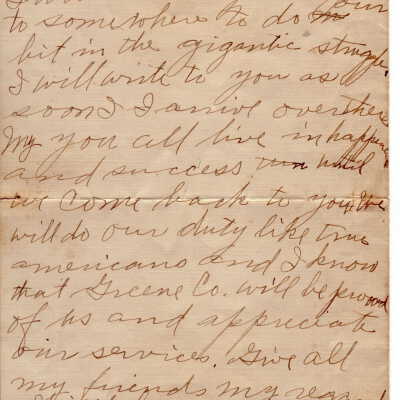 our
to somewhere to do
bit in the gigantic struggle.
I will write to you as
soon I arive over there
My you all live in happiness
and success until
we come back to you. We
will do our duty like true
americans and I know
that Greene Co. will be proud
of us and appreciate
our services. Give all
my friends my regards